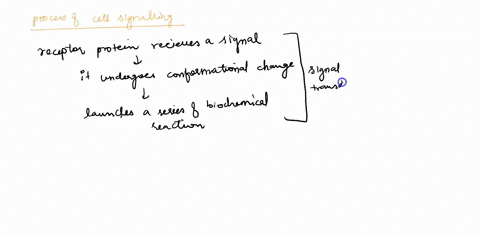 process of cell signalling
receptor protein recieves a signal
↓
it undergoes conformational change
↓
launches a series of biochemical
reaction
signal
trans